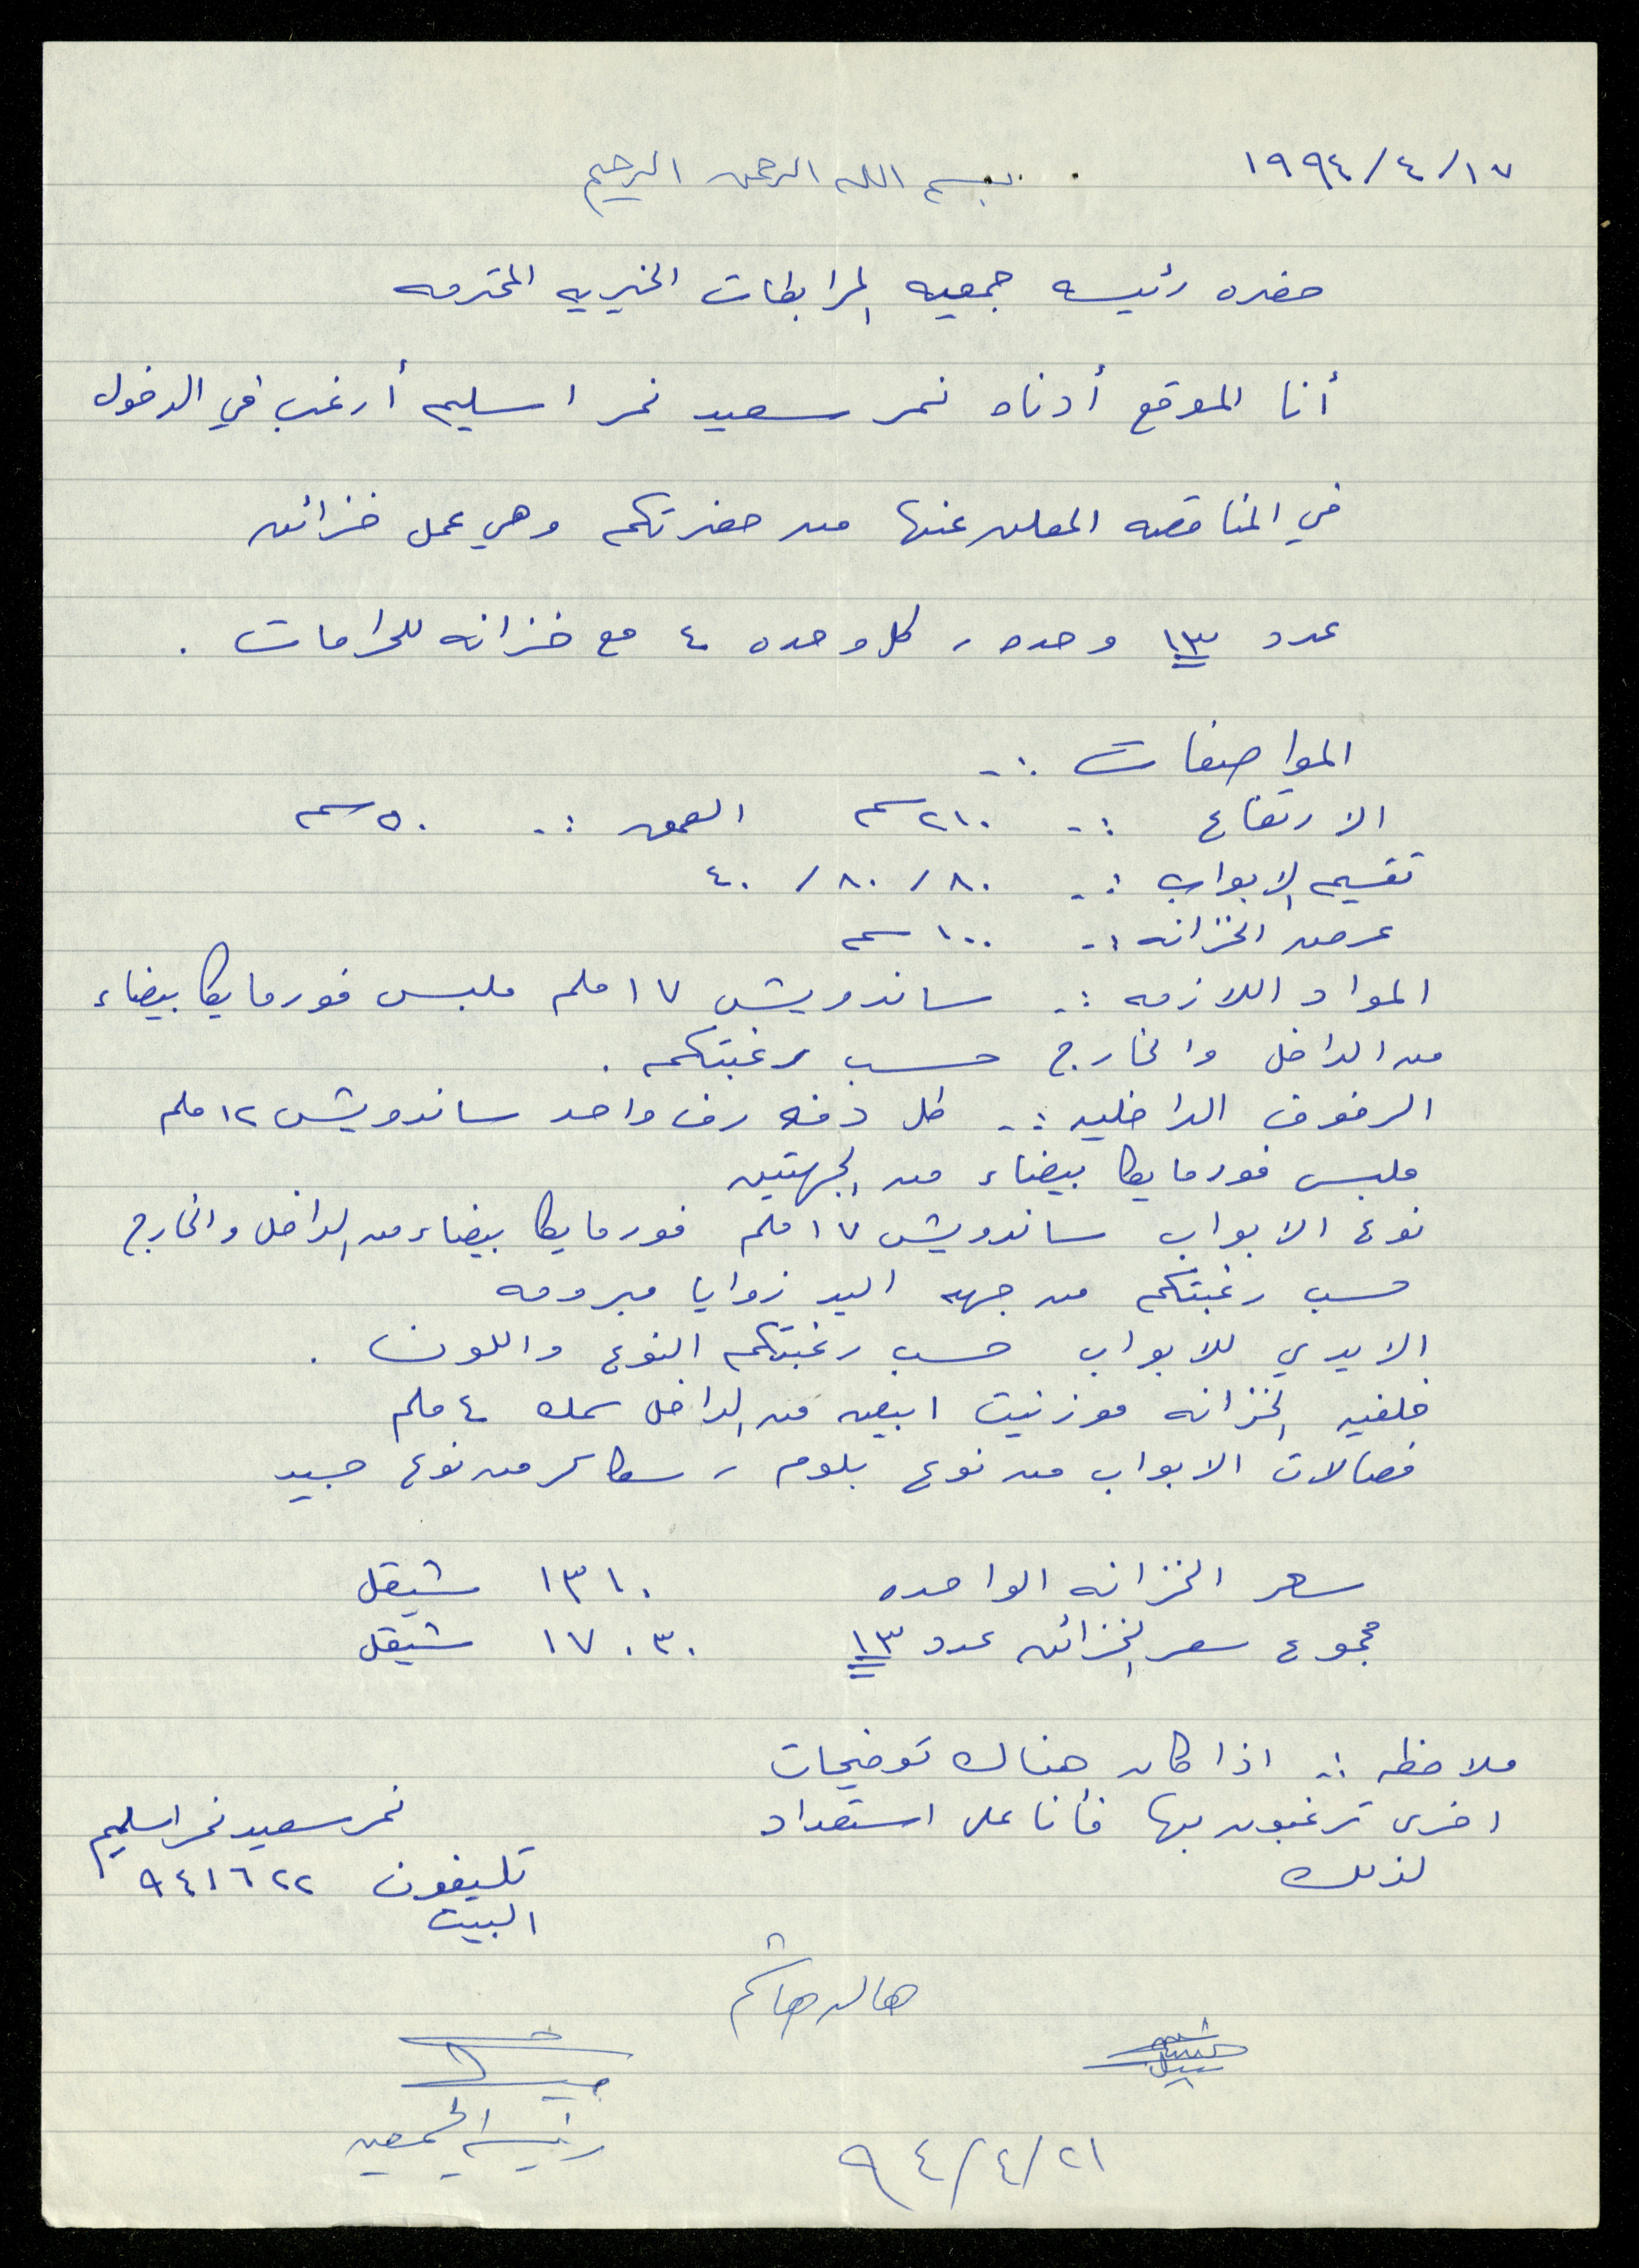 ١٩٩٤/٤/١٧
بسم الله الرحمن الرحيم
حضره رئيسه جمعيه المرابطات الخيريه المحترمه
أنا الموقع أدناه نمر سعيد نمر اسليم أرغب في الدخول
في المناقصه المعلن عنها من حضرتكم وهي عمل خزائن
عدد ١٣ وحده ، كل وحده ٤ مع خزانه للحرامات .
المواصفات :-
الارتفاع :- ٢١٠ سم العمق :- ٥٠ سم
تقسيم الابواب :- ٨٠ / ٨٠ / ٤٠
عرض الخزانه :- ١٠٠ سم
المواد اللازمه :- ساندويش ١٧ ملم ملبس فورمايكا بيضاء
من الداخل والخارج حسب رغبتكم .
الرفوف الداخليه :- كل دفه رف واحد ساندويش ١٢ ملم
ملبس فورمايكا بيضاء من الجهتين
نوع الابواب ساندويش ١٧ ملم فورمايكا بيضاء من الداخل والخارج
حسب رغبتكم من جهه اليد زوايا مبرومه
الايدي للابواب حسب رغبتكم النوع واللون .
خلفيه الخزانه موزنيت ابيض من الداخل سمك ٤ ملم
فصالات الابواب من نوع بلوم ، سكاكر من نوع جيد
سعر الخزانه الواحده ١٣١٠ شيقل
مجموع سعر الخزائن عدد ١٣ ١٧٠٣٠ شيقل
ملاحظه :- اذا كان هناك توضيحات
اخرى ترغبون بها فأنا على استعداد
لذلك
نمر سعيد نمر اسليم
تليفون ٩٤١٦٢٢
البيت
هاله هاشم
رئيسة الجمعيه
٩٤/٤/٢١